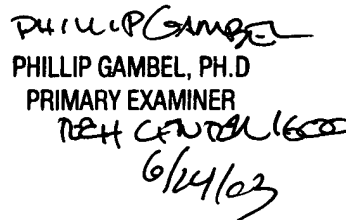 PHILLIP GAMBEL
PHILLIP GAMBEL, PH.D
PRIMARY EXAMINER
TECH CENTER 1600
6/24/03